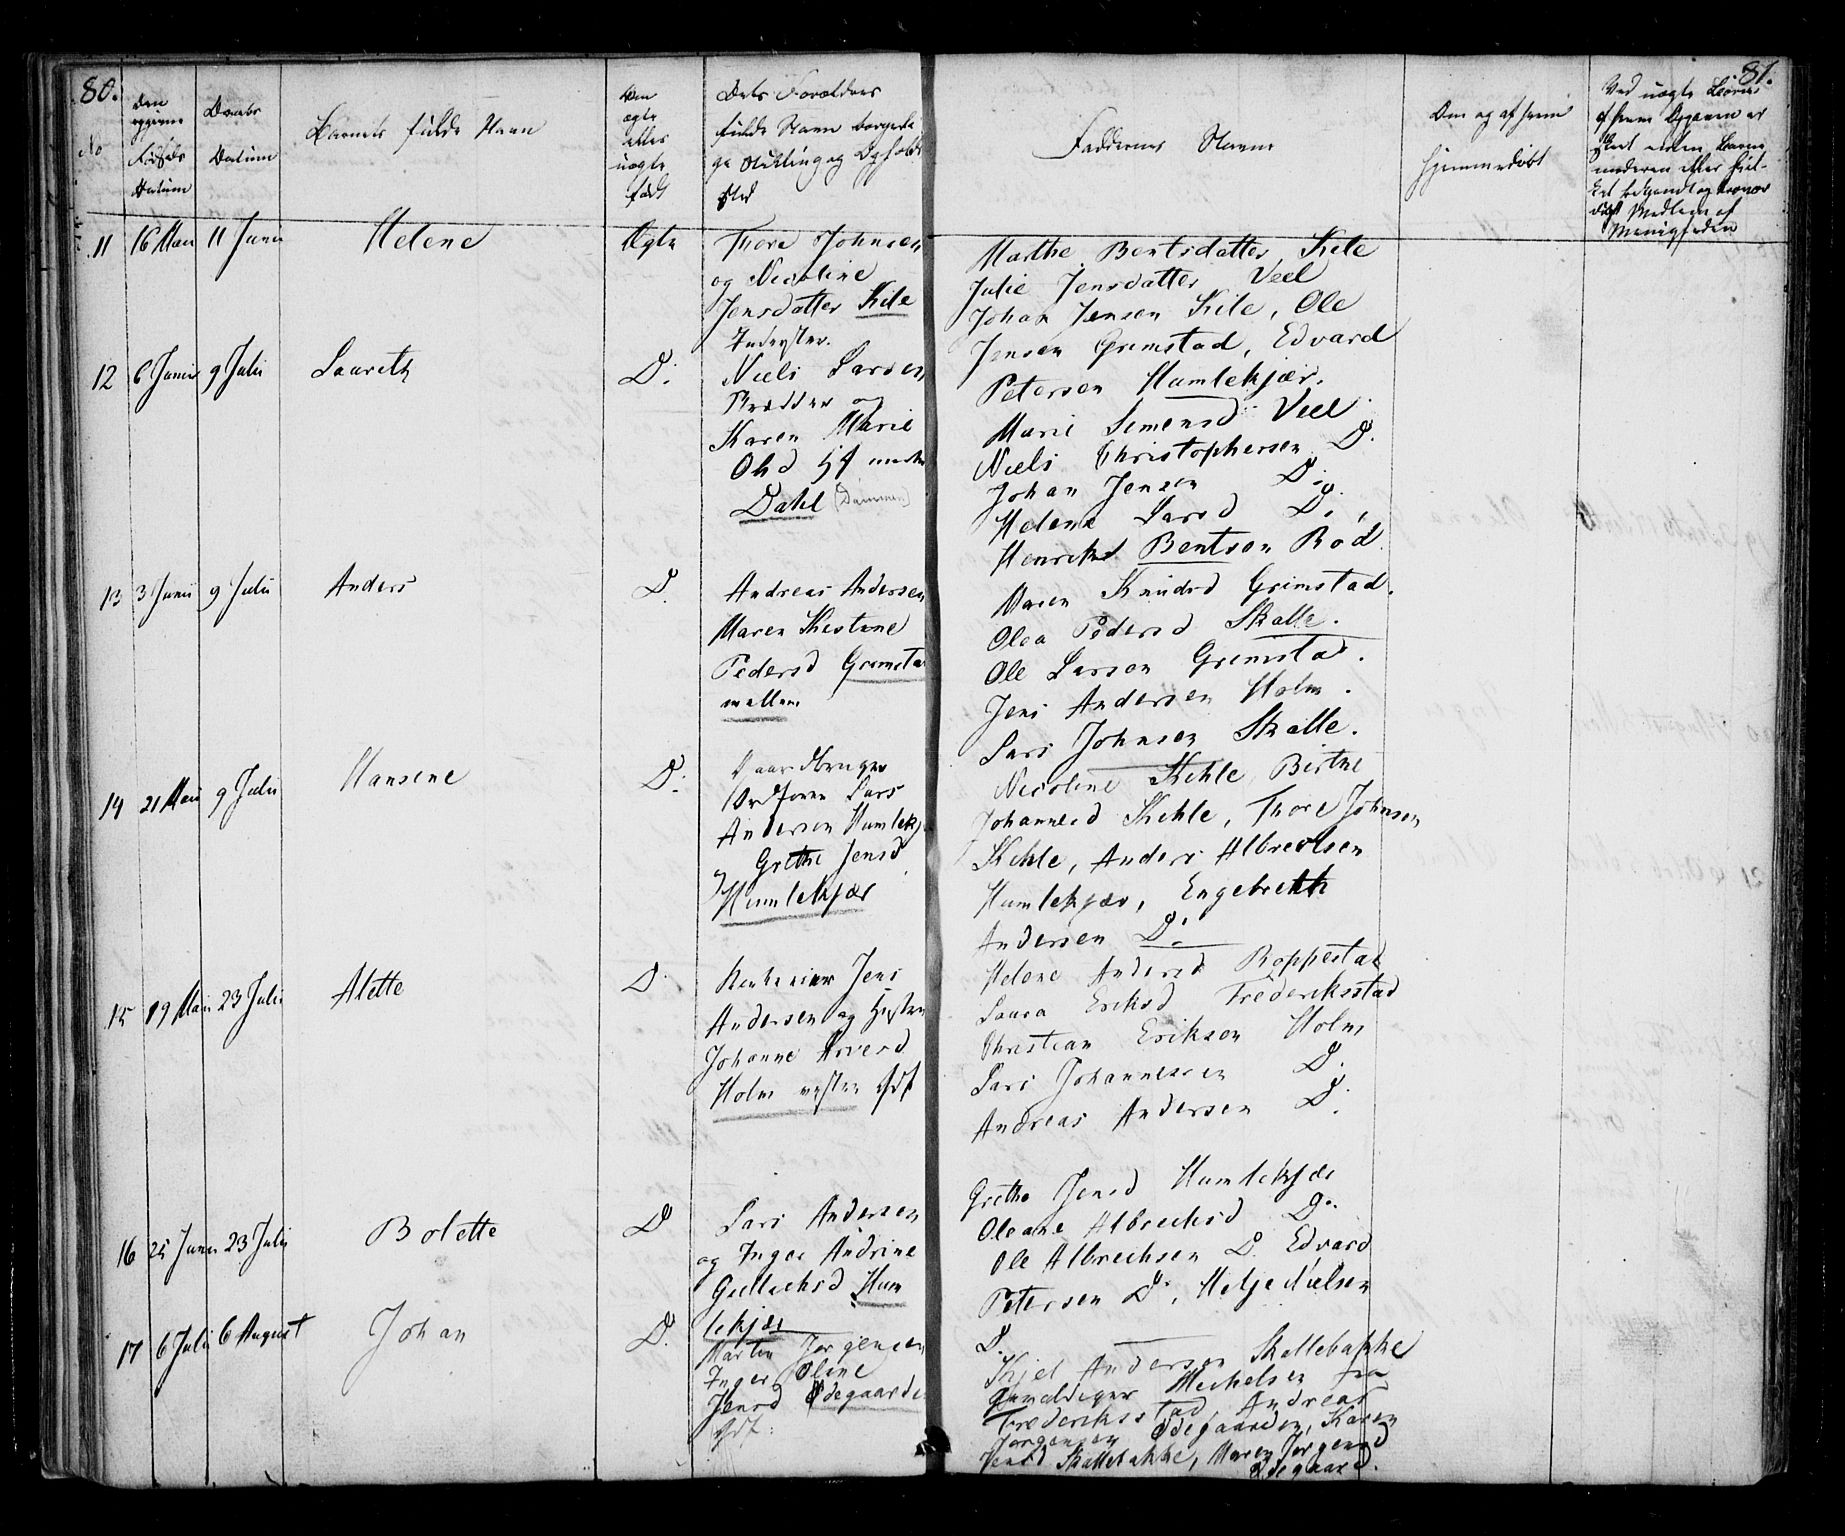 80.
81.
No
Den
Fødsels
Datum
Daabs
Datum
Barnets fulde Navn
Om
ægte
eller
uægte
født
Dets Forældres
fulde Navn borgerli
ge Stilling og Opholds
Sted
Faddernes Navne
Om og af hvem
hjemmedøbt
Ved uægte
Menigheden
11 16 Mai 11 Junii Helene Ægte
Thore Johnsen
og Nicoline
Jensdatter Kile
Inderster.
Marthe Berntsdatter Kile
Julie Jensdatter Veel
Johan Jensen Kile, Ole
Jensen Grimstad, Edvard
Petersen Humlekjær.
12 6 Junii 9 Julii Laurits D.
Niels Larsen
og
Karen Marie
Olsd
Dahl (Dammen)
Marie Simensd Veel
Niels Christophersen D.
Johan Jensen D.
Helene Larsd D.
Henrikd Bentsen Rød
13 3 Junii 9 Julii Anders D.
Andreas Andersen
Maren Kristine
Pedersd Grimstad
mellem
Maren Knudsd Grimstad.
Olea Pedersd Skalle.
Ole Larsen Grimstad.
Jens Andersen Holm.
Lars Johnsen Skalle.
14 21 Mai 9 Julii Hansine D.
Gaardbruger
Ordfører Lars
Andersen Humlekj
og Grethe Jensd
Humlekjær
Nicoline Kihle, Birthe
Johannesd Kihle, Thore Johnsen
Kihle, Anders Albrectsen
Humlekjær, Engebreth
Andersen D.
15 19 Mai 23 Julii Alette D.
Jens
Andersen og Hustru
Johanne Iversd
Holm vestre Gdf
Helene Andersd Roppestad
Laura Eriksd Frederiksstad
Christian Eriksen Holm
Lars Johannesen D.
Andreas Andersen D.
16 25 Junii 23 Julii Bolette D
Lars Andersen
og Inger Andrine
Gulliksd Hum
lekjær
Grethe Jensd Humlekjær
Oleane Albrechsd D.
Ole Albrechsen D. Edvard
Petersen D., Helje Nielsen
D.
17 6 Julii 6 August Johan D.
Martin Jørgensen
Inger Oline
Jensd Ødegaarden
Gdf.
Kjel Andersen Skallebakke
Michelsen fra
Frederiksstad, Andreas
Jørgensen Ødegaarden, Karen
Jensd Skallebakke, Maren Jørgensd
Ødegaard.